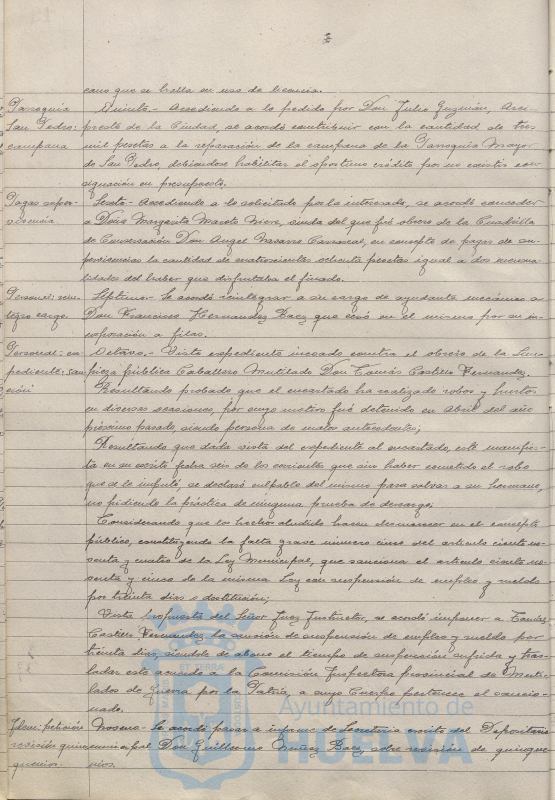 cano que se halla en uso de licencia.
Parroquia Quinto.- Accediendo a lo pedido por Don Julio Guzmán, Arci-
San Pedro: preste de la Ciudad, se acordó contribuir con la cantidad de tres
campana mil pesetas a la reparación de la campana de la Parroquia Mayor
de San Pedro, debiendose habilitar el oportuno crédito por no existir con-
signación en presupuesto.
Pagas super- Sexto- Accediendo a lo solicitado por la interesada, se acordó conceder
vivencia a Doña Margarita Macoto viuda del que fué obrero de la Cuadrilla
de Conservación Don Angel Navarro Carrascal, en concepto de pagas de su-
pervivencias la cantidad de cuatrocientas ochenta pesetas igual a dos mensua-
lidades del haber que disfrutaba el finado.
Personal: rein- Septimo- Se acordó reintegrar a su cargo de ayudante mecánico a
tegro cargo. Don Francisco Hernandez Baez que cesó en el mismo por su in-
corporación a filas.
Personal: ex- Octavo.- Visto expediente incoado contra el obrero de la Lim-
pediente: san- pieza pública Caballero Mutilado Don Tomás Castilla Fernandez.
ción Resultando probado que el encartado ha realizado robos y hurtos
en diversas ocasiones, por cuyo motivo fué detenido en Abril del año
próximo pasado, siendo persona de malos antecedentes;
Resultando que dada vista del expediente al encartado, este manifies-
ta en su escrito fecha seis de los corrientes que sin haber cometido el robo
que se le imputó, se declaró culpable del mismo para salvar a su hermano,
no pidiendo la práctica de ninguna prueba de descargo;
Considerando que los hechos aludidos hacen desmerecer en el concepto
público, constituyendo la falta grave número cinco del articulo ciento no-
venta y cuatro de la Ley Municipal, que sanciona el articulo ciento no-
venta y cinco de la misma Ley con suspensión de empleo y sueldo
por treinta dias o destitución;
Vista propuesta del Señor Juez Instructor, se acordó imponer a Tomás
Castilla Fernandez la sanción de suspensión de empleo y sueldo por
treinta dias, siendole de abono el tiempo de suspensión sufrida y tras-
ladar este acuerdo a la Comisión Inspectora provincial de Muti-
lados de Guerra por la Patria, a cuyo Cuerpo pertenece el sancio-
nado.
Idem: petición Noveno- Se acordó pasar a informe de Secretaria escrito del Depositario
revisión quin- municipal Don Guillermo Nuñez Baez, sobre revisión de quinque-
quenios. nios.
Ayuntamiento de
HUELVA